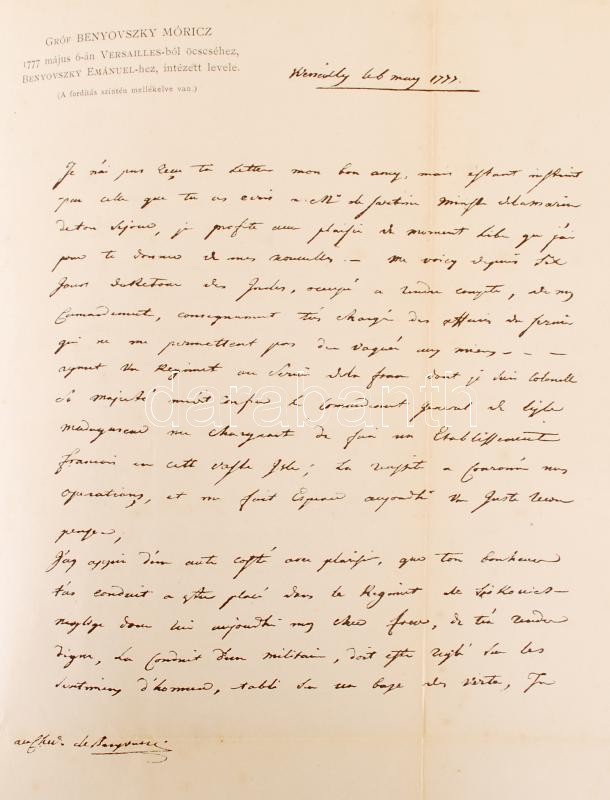 Gróf BENYOVSZKY MÓRICZ
1777 május 6-án VERSAILLES-ból öcscséhez,
BENYOVSZKY EMÁNUEL-hez, intézett levele.
(A fordítás szintén mellékelve van.)
le 6 may 1777.
Je n'ai pas reçu ta Letter mon bon amy, mais estant instruit
par celle que tu as ecris a Mr. de Sartine
de ton Sejour, je profite avec plaisir de moment libre que j'ai
pour te donner de mes nouvelles. — me voicy depuis Six
Jours de Retour des Indes, occupé a rendre compte, de mes
Comandement, consequament très chargé des affaires du Service
qui ne me permettent pas de vaguer aux miens - - -
ayant un Regiment au Service de la france dont je suis colonelle
Sa majesté m'aiant le Comandement general de l'isle
madagascar me chargeant de faire un Etablissement
francois en cette vaste Isle; La a Couronné mes
operations, et me fait Esperer aujourdhui un Juste recom
pense,
J'ay appri d'un autre costé avec plaisir, que ton bonheur
t'as conduit a estre placé dans le Regiment de
neglige donc rien aujourdhui mon cher frere, de t'en rendre
digne, La Conduit d'un militaire, doit estre reglé sur les
sentimens d'honneur, etabli sur un base des vertu, Tu
au Chev. de Benyowszki
darabanth